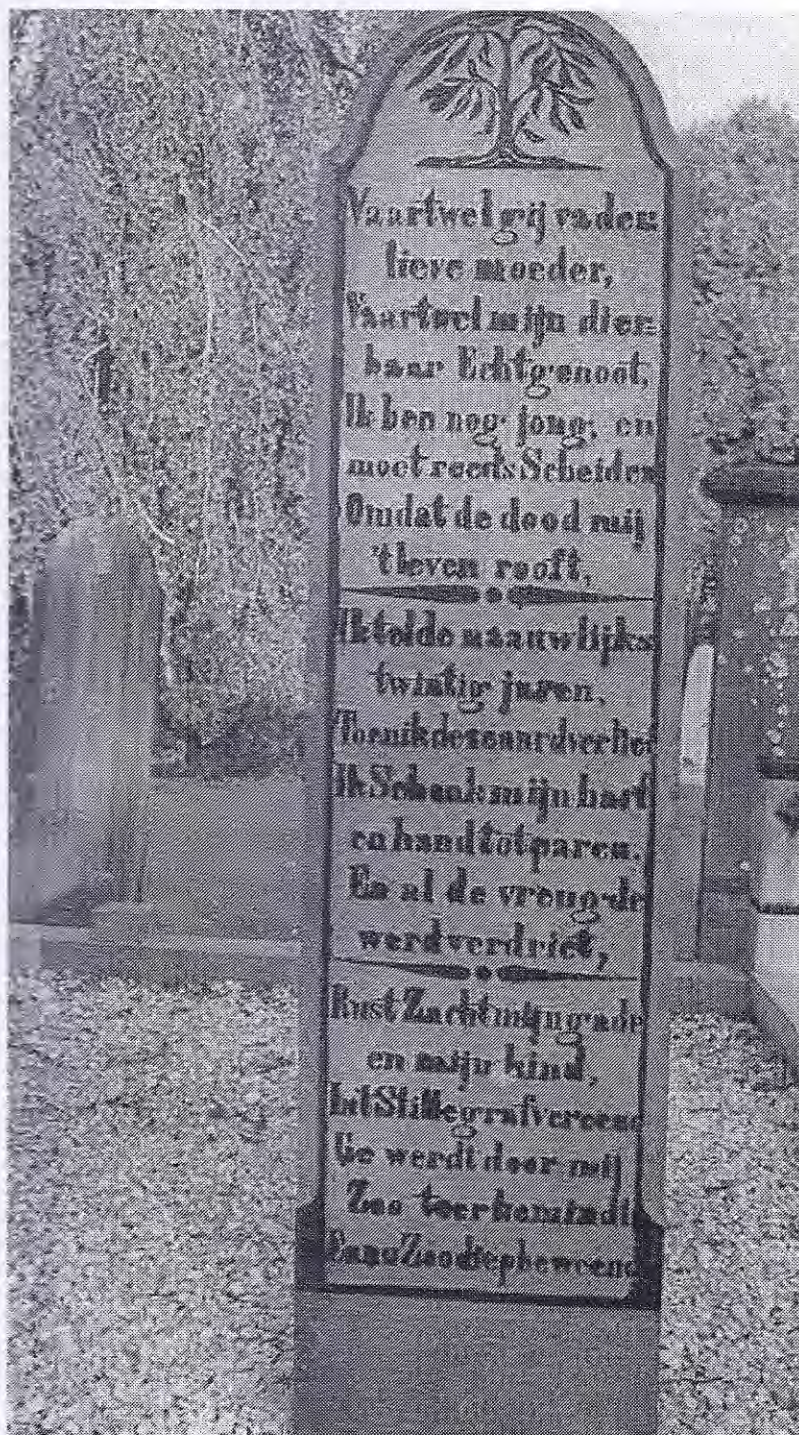 Vaartwel gij vader=
lieve moeder,
Vaartwel mijn dier=
baar Echtgenoot,
Ik ben nog jong, en
moet reeds Scheiden
Omdat de dood mij
't leven rooft,
Ik telde naauwlijks
twintig jaren,
Toen ik deze aard verliet
Ik Schonk mijn hart
en hand tot paren.
En al de vreugde
werd verdriet,
Rust Zacht mijn gade
en mijn kind,
In't Stille graf vereend
Ge werdt door mij
Zoo teer bemindt
En nu Zoo diep beweend